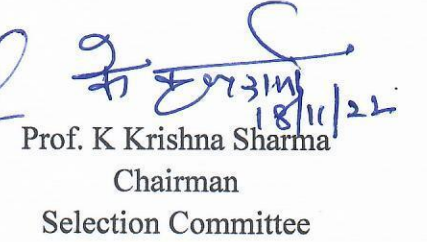 18/11/22
Prof. K Krishna Sharma
Chairman
Selection Committee